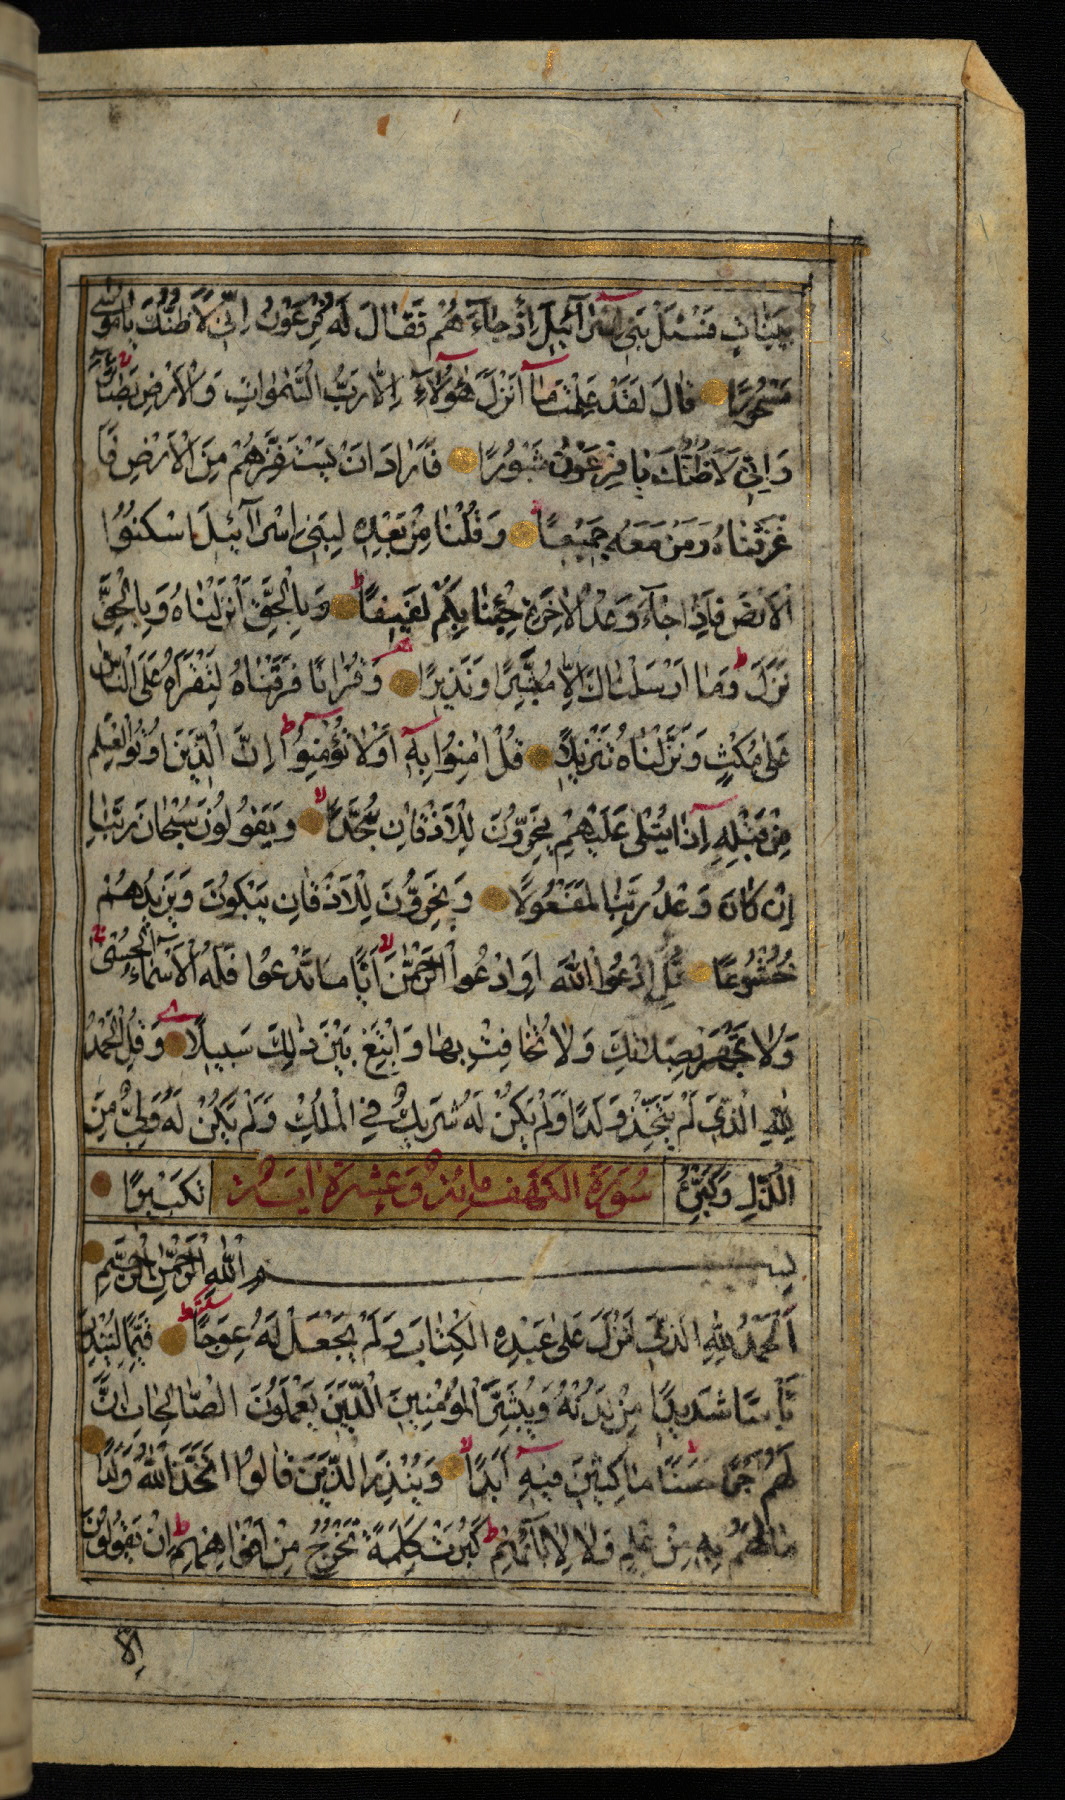 بَيِّنَاتٍ فَسْئَلْ بَنِي اِسْرَآئِيلَ اِذْ جَآءَهُمْ فَقَالَ لَهُ فِرْعَوْنُ اِنِّي لَاَظُنُّكَ يَامُوسٰى
مَسْحُورًا قَالَ لَقَدْ عَلِمْتَ مَآ اَنْزَلَ هٰٓؤُلَآءِ اِلَّا رَبُّ السَّمٰوَاتِ وَالْاَرْضِ بَصَآئِرَ
وَاِنِّي لَاَظُنُّكَ يَا فِرْعَوْنُ مَثْبُورًا فَاَرَادَ اَنْ يَسْتَفِزَّهُمْ مِنَ الْاَرْضِ فَاَ
غْرَقْنَاهُ وَمَنْ مَعَهُ جَمِيعًا وَقُلْنَا مِنْ بَعْدِهِ لِبَنِي اِسْرَآئِيلَ اسْكُنُوا
الْاَرْضَ فَاِذَا جَآءَ وَعْدُ الْاٰخِرَةِ جِئْنَا بِكُمْ لَفِيفًا وَبِالْحَقِّ اَنْزَلْنَاهُ وَبِالْحَقِّ
نَزَلَ وَمَا اَرْسَلْنَاكَ اِلَّا مُبَشِّرًا وَنَذِيرًا وَقُرْاٰنًا فَرَقْنَاهُ لِتَقْرَاَهُ عَلَى النَّاسِ
عَلٰى مُكْثٍ وَنَزَّلْنَاهُ تَنْزِيلًا قُلْ اٰمِنُوا بِهِ اَوْ لَا تُؤْمِنُوا اِنَّ الَّذِينَ اُوتُوا الْعِلْمَ
مِنْ قَبْلِهِ اِذَا يُتْلٰى عَلَيْهِمْ يَخِرُّونَ لِلْاَذْقَانِ سُجَّدًا وَيَقُولُونَ سُبْحَانَ رَبِّنَا
اِنْ كَانَ وَعْدُ رَبِّنَا لَمَفْعُولًا وَيَخِرُّونَ لِلْاَذْقَانِ يَبْكُونَ وَيَزِيدُهُمْ
خُشُوعًا قُلِ ادْعُوا اللّٰهَ اَوِ ادْعُوا الرَّحْمٰنَ اَيًّا مَا تَدْعُوا فَلَهُ الْاَسْمَآءُ الْحُسْنٰى
وَلَا تَجْهَرْ بِصَلَاتِكَ وَلَا تُخَافِتْ بِهَا وَابْتَغِ بَيْنَ ذٰلِكَ سَبِيلًا وَقُلِ الْحَمْدُ
لِلّٰهِ الَّذِي لَمْ يَتَّخِذْ وَلَدًا وَلَمْ يَكُنْ لَهُ شَرِيكٌ فِي الْمُلْكِ وَلَمْ يَكُنْ لَهُ وَلِيٌّ مِنَ
الذُّلِّ وَكَبِّرْهُ سُورَةُ الكهف مائة وعشرة ايات تَكْبِيرًا
بِسْمِ اللّٰهِ الرَّحْمٰنِ الرَّحِيمِ
اَلْحَمْدُ لِلّٰهِ الَّذِي اَنْزَلَ عَلٰى عَبْدِهِ الْكِتَابَ وَلَمْ يَجْعَلْ لَهُ عِوَجًا قَيِّمًا لِيُنْذِرَ
بَأْسًا شَدِيدًا مِنْ لَدُنْهُ وَيُبَشِّرَ الْمُؤْمِنِينَ الَّذِينَ يَعْمَلُونَ الصَّالِحَاتِ اَنَّ
لَهُمْ اَجْرًا حَسَنًا مَاكِثِينَ فِيهِ اَبَدًا وَيُنْذِرَ الَّذِينَ قَالُوا اتَّخَذَ اللّٰهُ وَلَدًا
مَا لَهُمْ بِهِ مِنْ عِلْمٍ وَلَا لِاٰبَآئِهِمْ كَبُرَتْ كَلِمَةً تَخْرُجُ مِنْ اَفْوَاهِهِمْ اِنْ يَقُولُونَ
اِلَّا